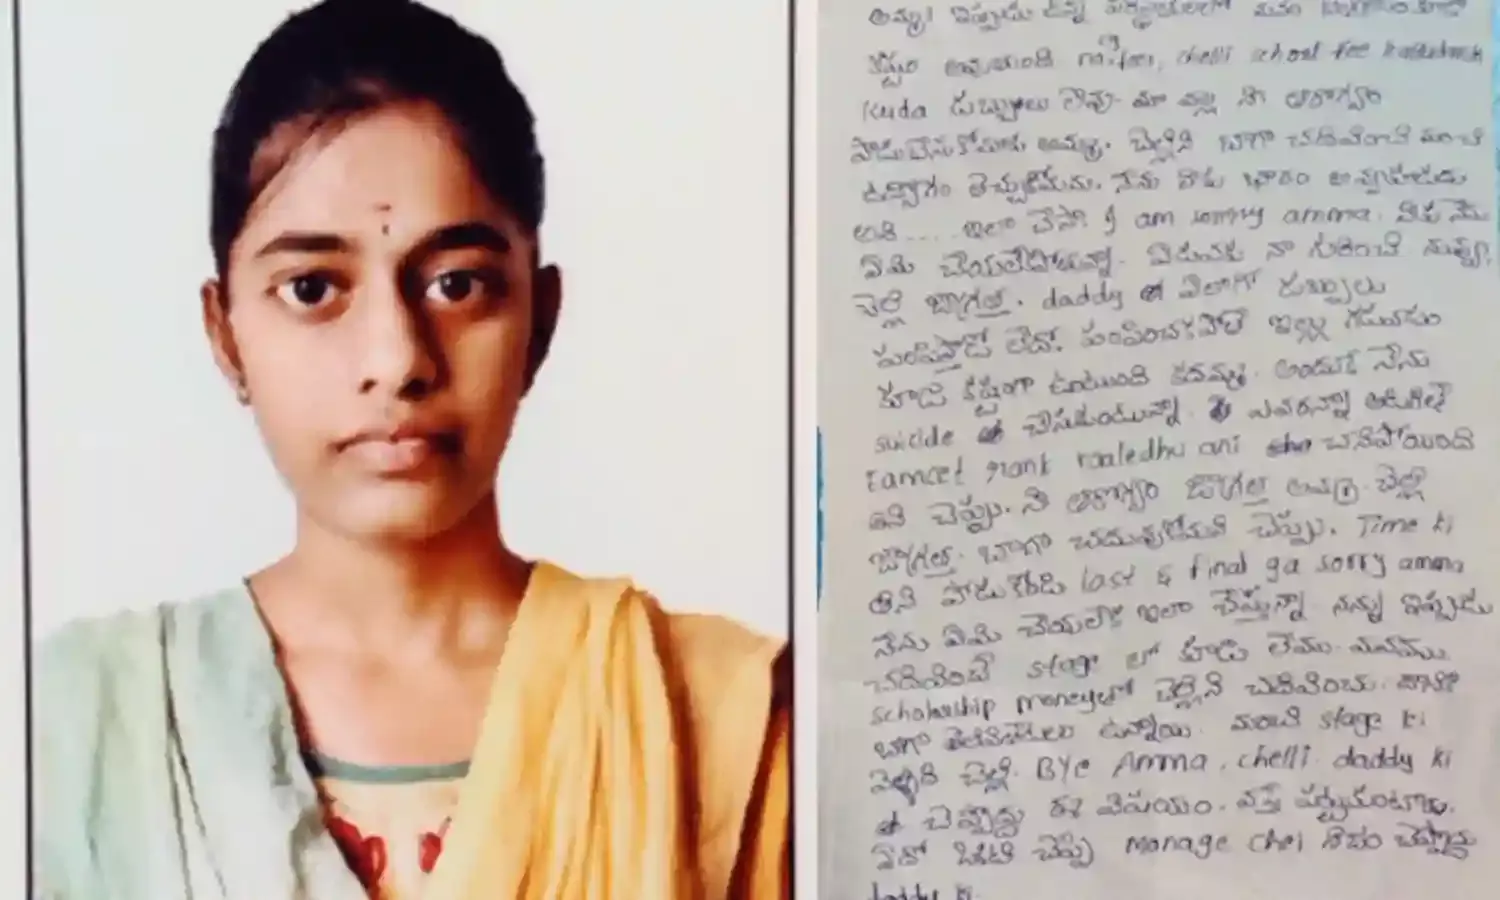 అమ్మా ఇప్పుడు ఉన్న పరిస్థితులలో మనం
కష్టం అవుతుంది fees, chelli school fee kattadanik
kuda డబ్బులు లేవు. మా వల్ల నీ ఆరోగ్యం
పాడుచేసుకోమాకు అమ్మ. చెల్లిని బాగా చదివించి మంచి
ఉద్యోగం తెచ్చుకోమను. నేను కూడ భారం అవ్వకూడదు
అని .... ఇలా చేసా I am sorry amma. నీకు నేను
ఏమి చేయలేకపోతున్నా. ఏడువకు నా గురించి నువ్వు,
చెల్లి జాగ్రత్త. daddy ఎలాగో డబ్బులు
పంపిస్తాడో లేదో. పంపించకపోతే ఇల్లు గడవడం
కూడ కష్టంగా ఉంటుంది కదమ్మ. అందుకే నేను
suicide చేసుకుంటున్నా. ఎవరన్నా అడిగితే
Eamcet rank raaledhu ani చనిపోయింది
అని చెప్పు. నీ ఆరోగ్యం జాగ్రత్త అమ్మ. చెల్లి
జాగ్రత్త. బాగా చదువుకోమని చెప్పు. Time ki
తిని పడుకోండి last & final ga sorry amma
నేను ఏమి చేయలేక ఇలా చేస్తున్నా. నన్ను ఇప్పుడు
చదివించే stage లో కూడ లేము. మనము
scholarship moneyతో చెల్లిని చదివించు. దానికి
బాగా తెలివితేటలు ఉన్నాయి. మంచి stage ki
వెళ్ళాలి చెల్లి. Bye Amma, chelli. daddy ki
చెప్పొద్దు ఈ విషయం. వస్తే
ఏదో ఒకటి చెప్పి manage chei నిజం చెప్పొద్దు
daddy ki.